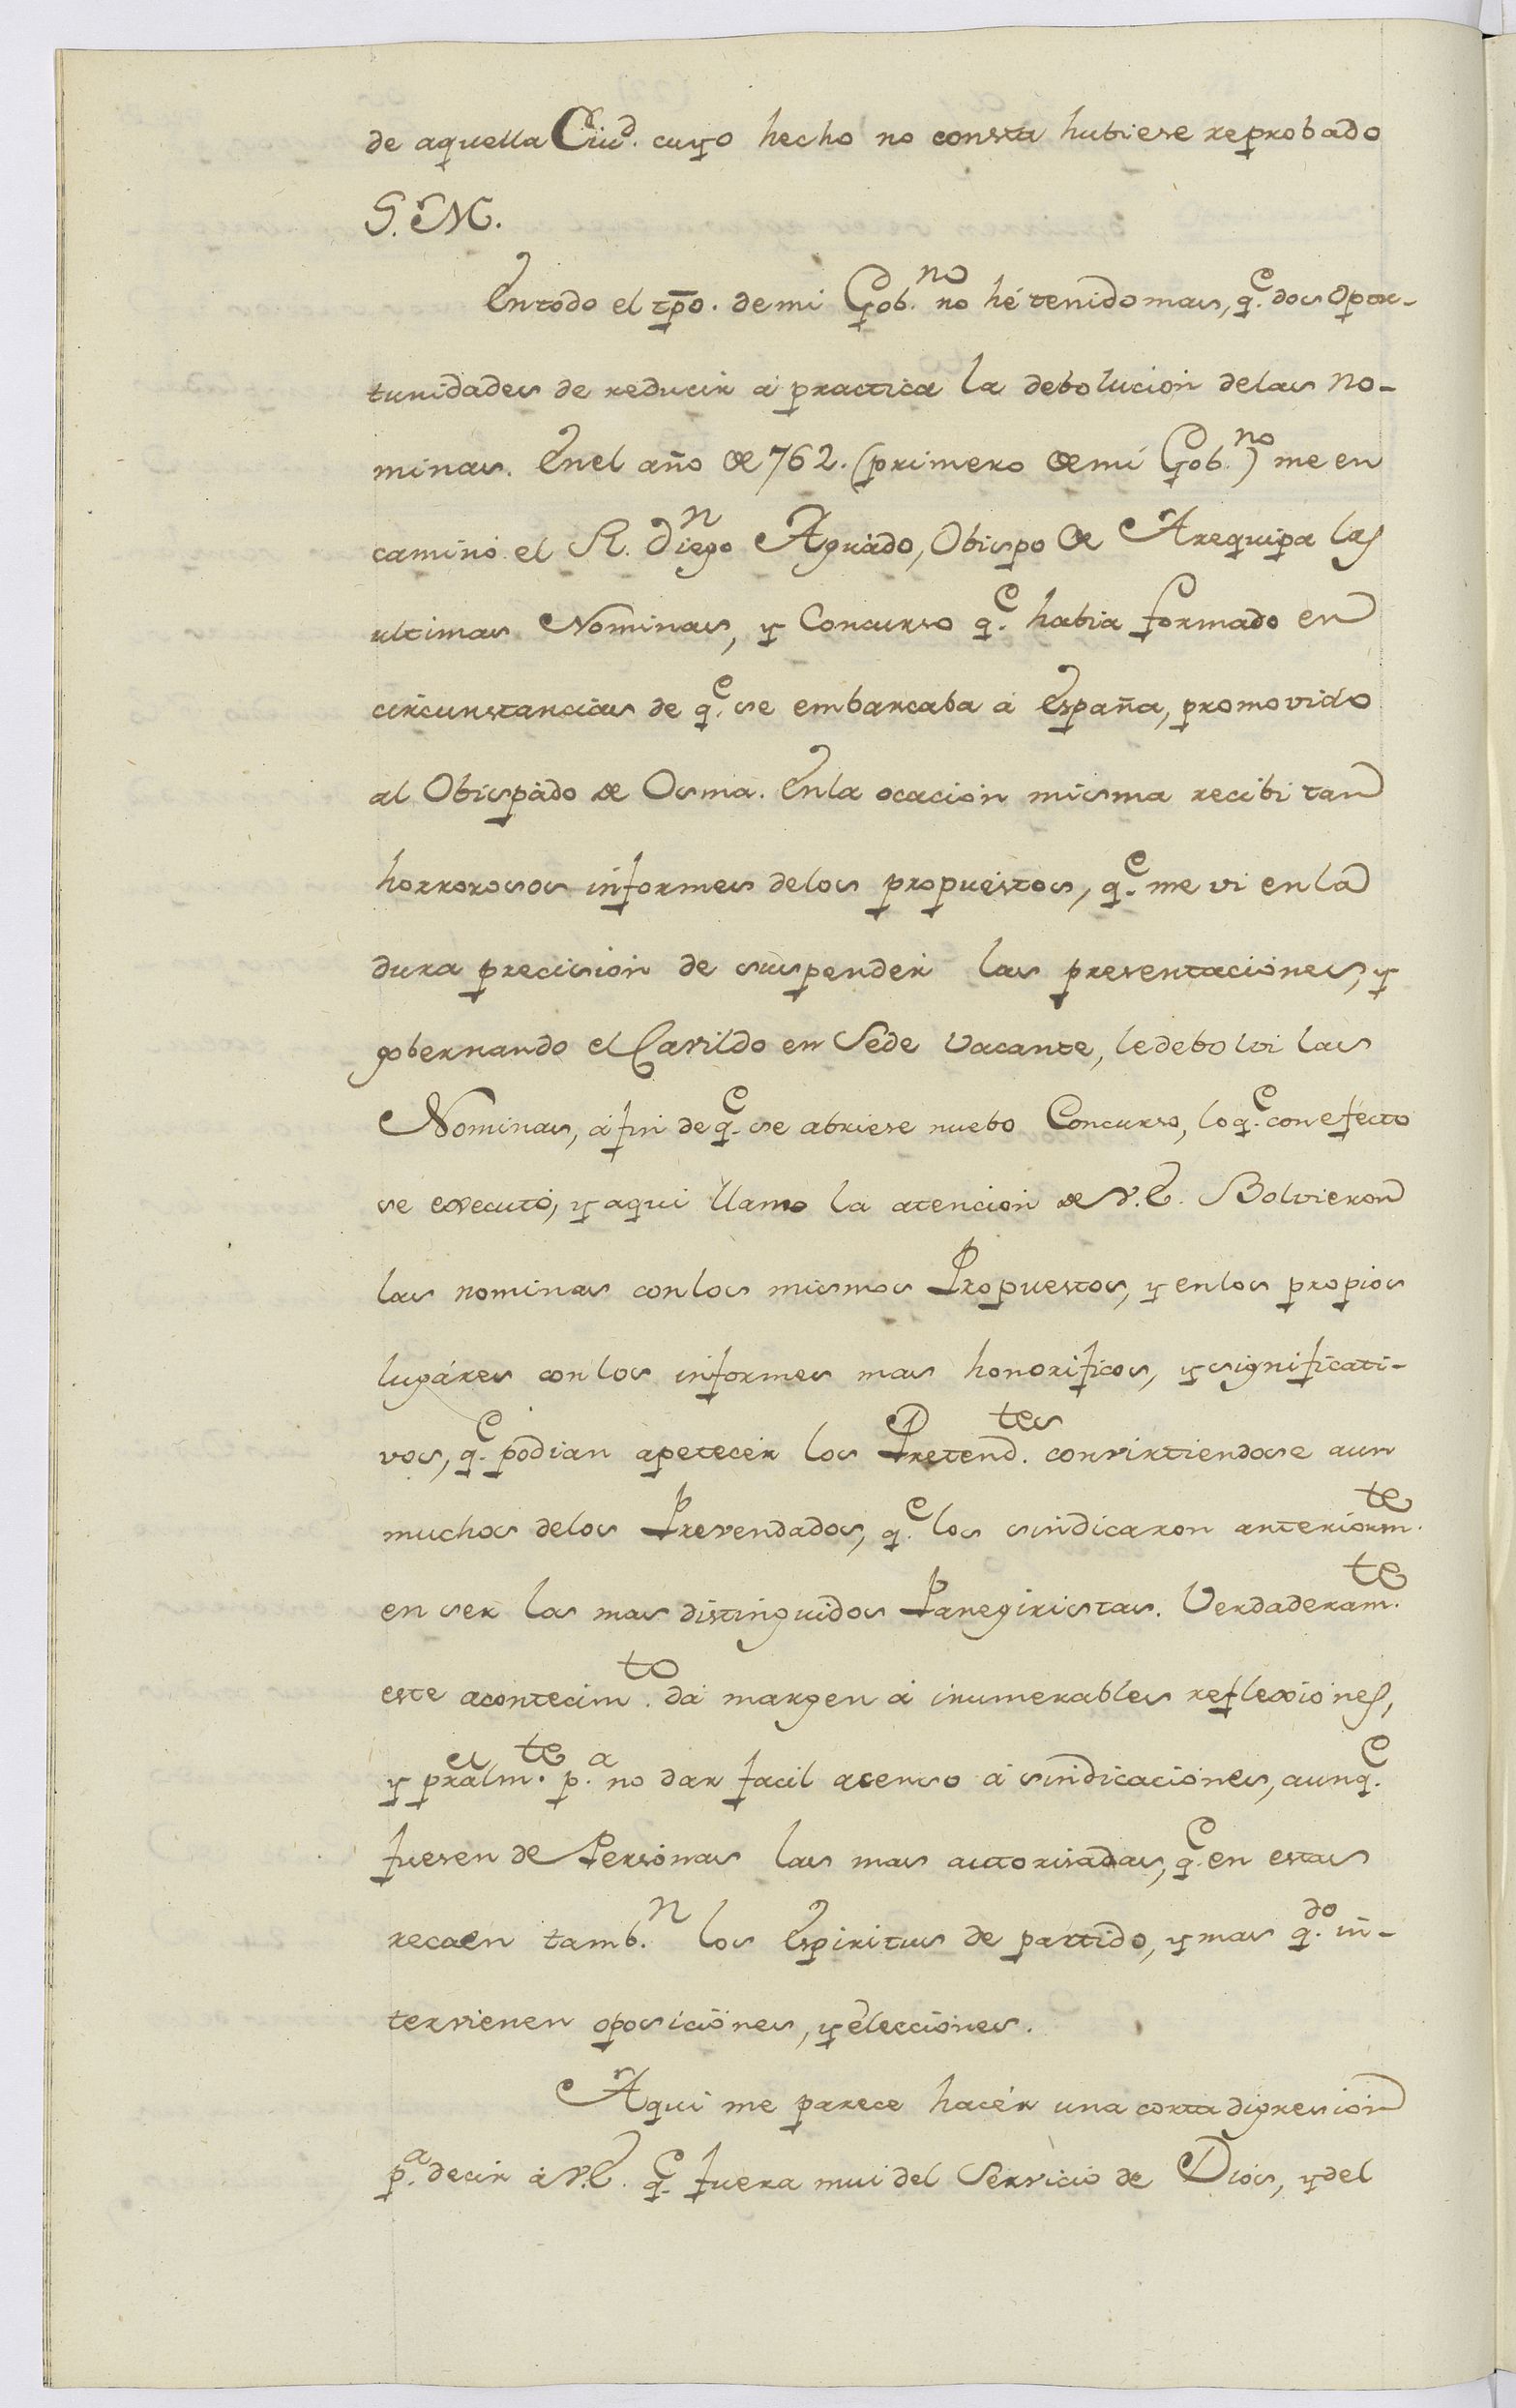 de aquella Ciud. cuyo hecho no consta hubiese reprobado
S. M.
En todo el tpo. de mi Gob.no no hé tenido mas, q.e dos Opor-
tunidades de reducir á practica la debolucion delas no-
minas. Enel año de 762. (primero de mi Gob.no) me en
caminó el R. Dn Diego Aguado, Obispo de Arequipa las
ultimas Nominas, y Concurso q.e habia formado en
circunstancias de q.e se embarcaba á España, promovido
al Obispado de Osma. Enla ocacion misma recibi tan
horrorosos informes delos propuestos, q.e me vi en la
dura precision de suspender las presentaciones, y
gobernando el Cavildo en Sede Vacante, le debolvi las
Nominas, á fin de q.e se abriese nuebo Concurso, lo q.e con efecto
se executó, y aqui llamo la atencion de V.E. Bolvieron
las nominas con los mismos Propuestos, y en los propios
lugáres con los informes mas honorificos, y significati-
vos, q.e podian apetecer los Pretend.tes convirtiendose aun
muchos delos Prevendados, q.e los sindicaron anteriorm.te
en ser los mas distinguidos Panegiristas. Verdaderam.te
este acontecim.to dá margen á inumerables reflexiones,
y pralm.te p.a no dar facil acenso á sindicaciones, aunq.e
fuesen de Personas las mas autorisadas, q.e en estas
recaen tamb.n los Espiritus de partido, y mas q.do in-
tervienen oposiciones, y elecciones.
Aqui me parece hacer una corta digresion
p.a decir á V.E. q.e fuera mui del Servicio de Dios, y del